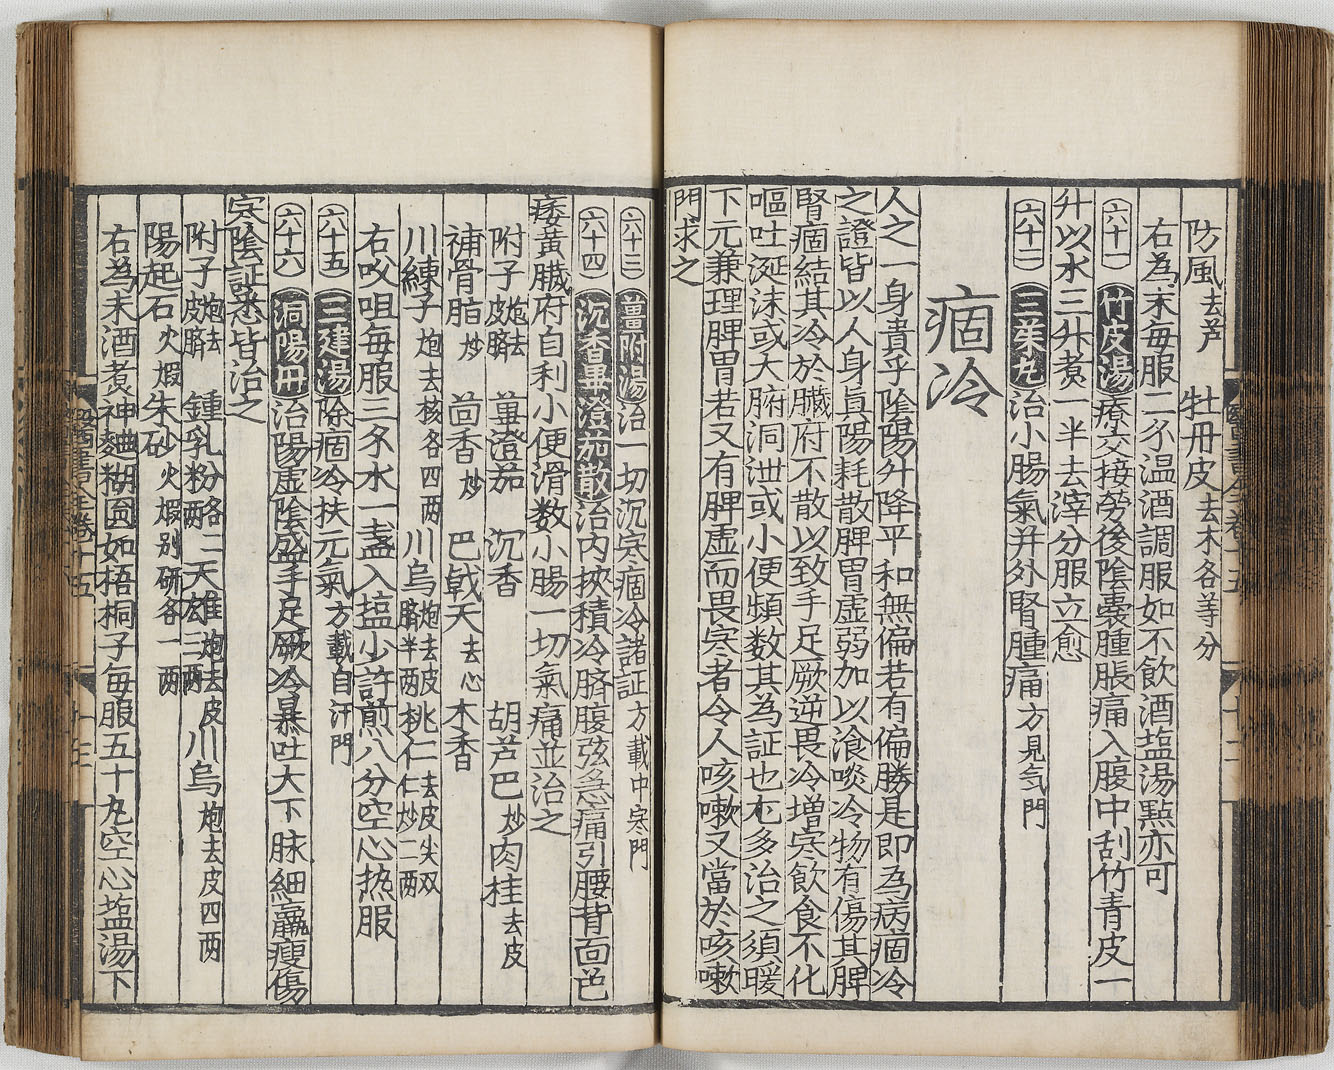 防風去芦 牡丹皮去木各等分
右為末毎服二夕温酒調服如不飲酒塩湯點亦可
六十一 竹皮湯 療交接勞後陰囊腫脹痛入腹中刮竹青皮一
升以水三升煮一半去滓分服立愈
六十二 三茱丸 治小腸氣并外腎腫痛方見気門
痼冷
人之一身貴乎陰陽升降平和無偏若有偏勝是即為病痼冷
之證皆以人身眞陽耗散脾胃虚弱加以飡啖冷物有傷其脾
腎痼結其冷於臓府不散以致手足厥逆畏冷増寒飲食不化
嘔吐涎沫或大腑洞泄或小便頻数其為証也尤多治之須暖
下元兼理脾胃若又有脾虚而畏寒者令人咳嗽又當於咳嗽
門求之
六十三 薑附湯 治一切沉寒痼冷諸証方載中寒門
六十四 沉香蓽澄茄散 治内挾積冷臍腹弦急痛引腰背面色
痿黄臓府自利小便滑数小腸一切氣痛並治之
附子炮去皮臍 蓽澄茄 沉香 胡芦巴炒 肉桂去皮
補骨脂炒 茴香炒 巴戟天去心 木香
川練子炮去核各四兩 川烏炮去皮臍半兩 桃仁去皮尖双仁炒二兩
右㕮咀毎服三夕水一盞入塩少許煎八分空心热服
六十五 三建湯 除痼冷扶元氣方載自汗門
六十六 洞陽丹 治陽虚陰盛手足厥冷暴吐大下脉細羸瘦傷
寒陰証悉皆治之
附子炮去皮臍 鍾乳粉各二兩 天雄炮去皮三兩 川烏炮去皮四两
陽起石火煅 朱砂火煅别研各一兩
右為末酒煮神麯糊圓如梧桐子毎服五十丸空心塩湯下